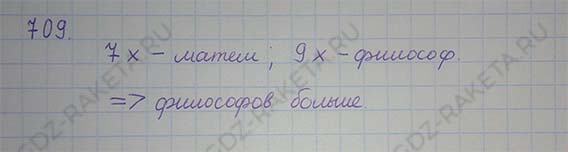 709.
7x – матем; 9x – философ.
=> философов больше.
GDZ-RAKETA.RU
GDZ-RAKETA.RU
GDZ-RAKETA.RU